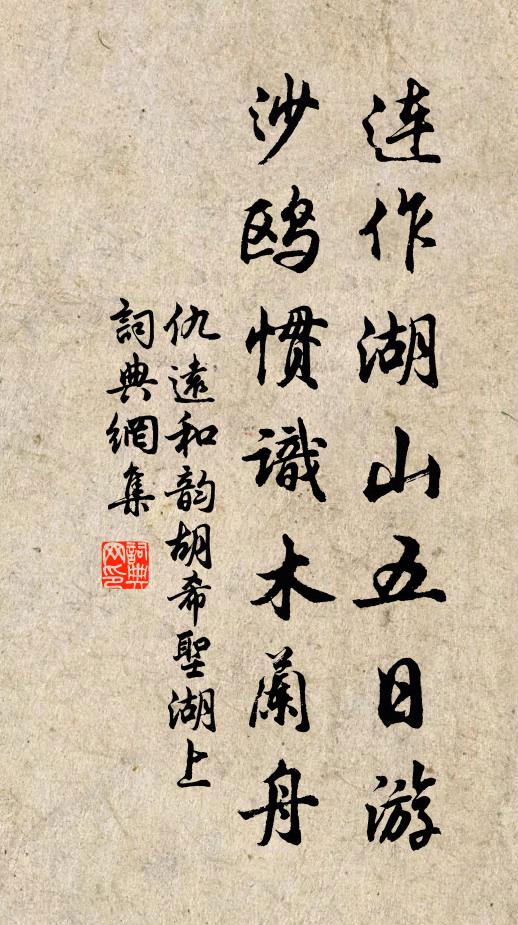 连作湖山五日游
沙鸥惯識木蘭舟
仇遠和韵胡希聖湖上
詞典網集
詞典網印